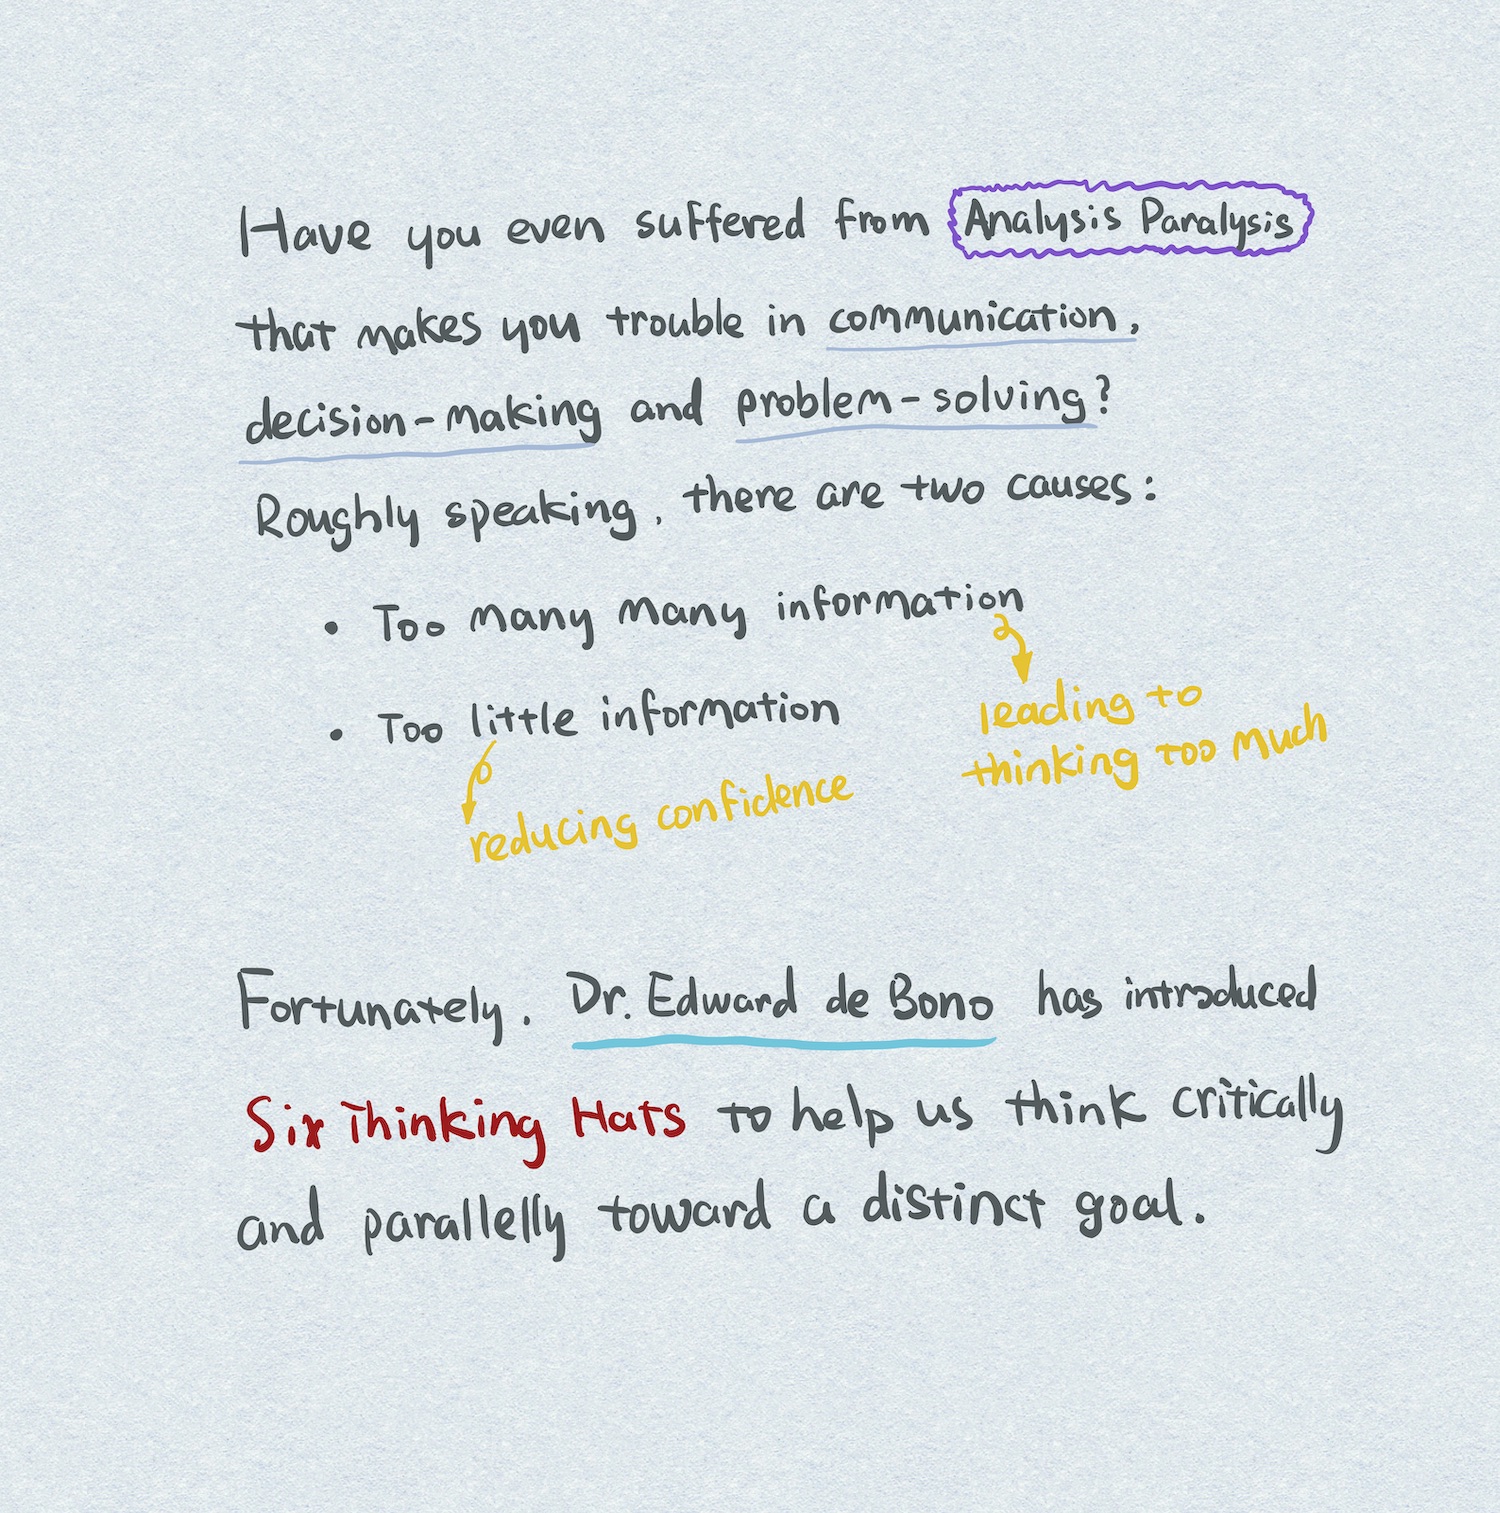 Have you even suffered from Analysis Paralysis
that makes you trouble in communication,
decision-making and problem-solving?
Roughly speaking, there are two causes:
• Too many many information
leading to
thinking too much
• Too little information
reducing confidence
Fortunately, Dr. Edward de Bono has introduced
Six Thinking Hats to help us think critically
and parallelly toward a distinct goal.